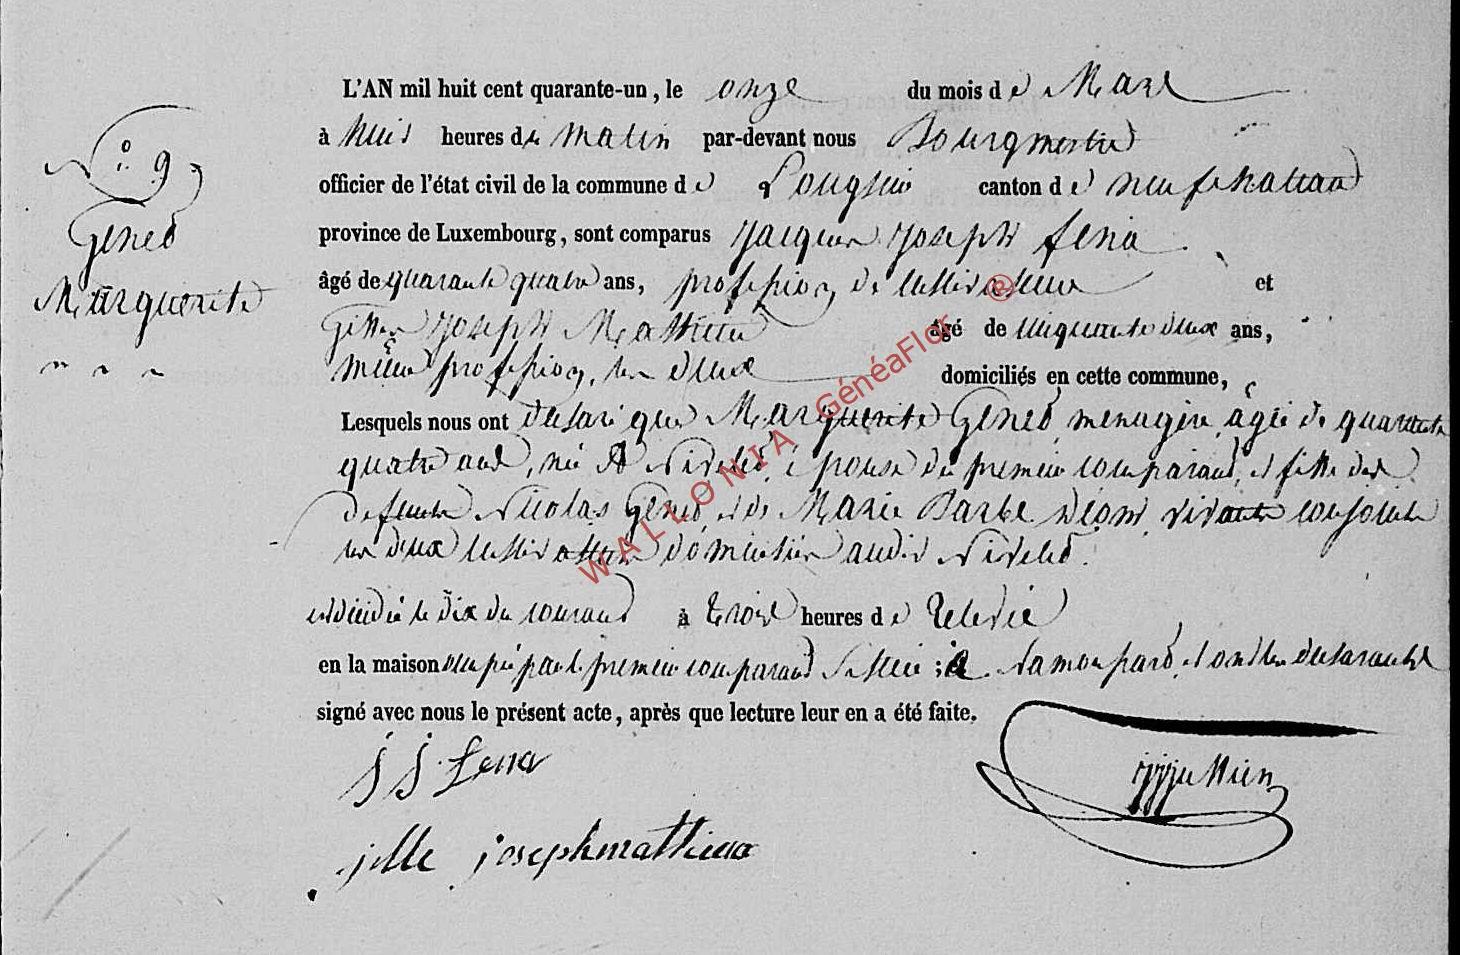 N° 9
Gened
Marguerite
L'AN mil huit cent quarante-un, le onze du mois de Mars
à huis heures du matin par-devant nous Bourgmestre
officier de l'état civil de la commune de Longlier canton de neufchateau
province de Luxembourg, sont comparus Jacques Joseph fena
âgé de quarante quatre ans, profession de cultivateur et
Gilles Joseph Mathieu âgé de cinquante deux ans,
même profession, les deux domiciliés en cette commune,
Lesquels nous ont déclaré que Marguerite Gened, menagère, âgée de quarante
quatre ans, née à épouse du premier comparant, et fille des
defunts Nicolas Gened, et de Marie Barbe vivants conjoints
les deux cultivateurs domiciliés audit
est décédée le dix du courant à trois heures de relevée
en la maison occupée par le premier comparant située à et ont les déclarants
signé avec nous le présent acte, après que lecture leur en a été faite.
j j fena
jille joseph mathieu
WALLONIA GénéaFlor ®